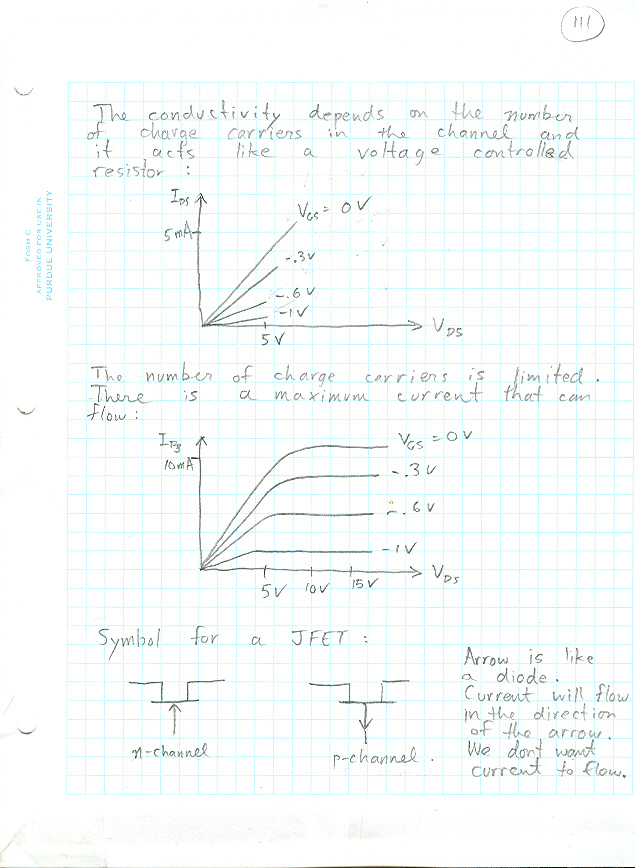 111
The conductivity depends on the number
of charge carriers in the channel and
it acts like a voltage controlled
resistor :
I_DS
V_GS = 0V
5mA
-.3V
-.6V
-1V
V_DS
5V
The number of charge carriers is limited.
There is a maximum current that can
flow:
I_DS
V_GS = 0V
10mA
-.3V
-.6V
-1V
V_DS
5V 10V 15V
Symbol for a JFET :
Arrow is like
a diode.
Current will flow
in the direction
of the arrow.
We dont want
current to flow.
n-channel
p-channel.
FORM C
APPROVED FOR USE IN
PURDUE UNIVERSITY